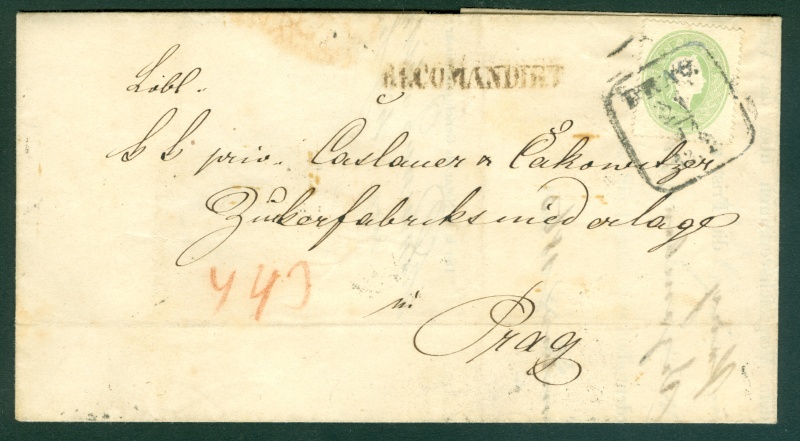 RECOMANDIRT
PRAG
Löbl.
k k priv. Caslauer & Čakowitzer
Zuckerfabriksniederlage
in
Prag
443